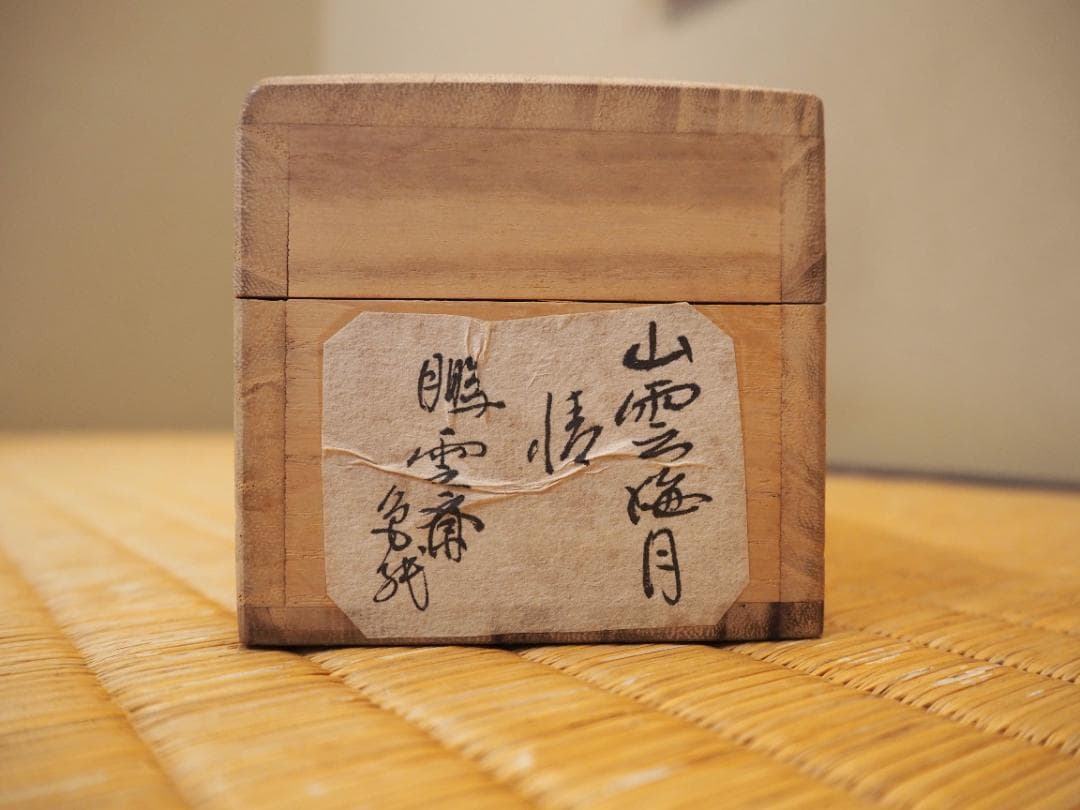 山雲海月
情
鵬雲斎